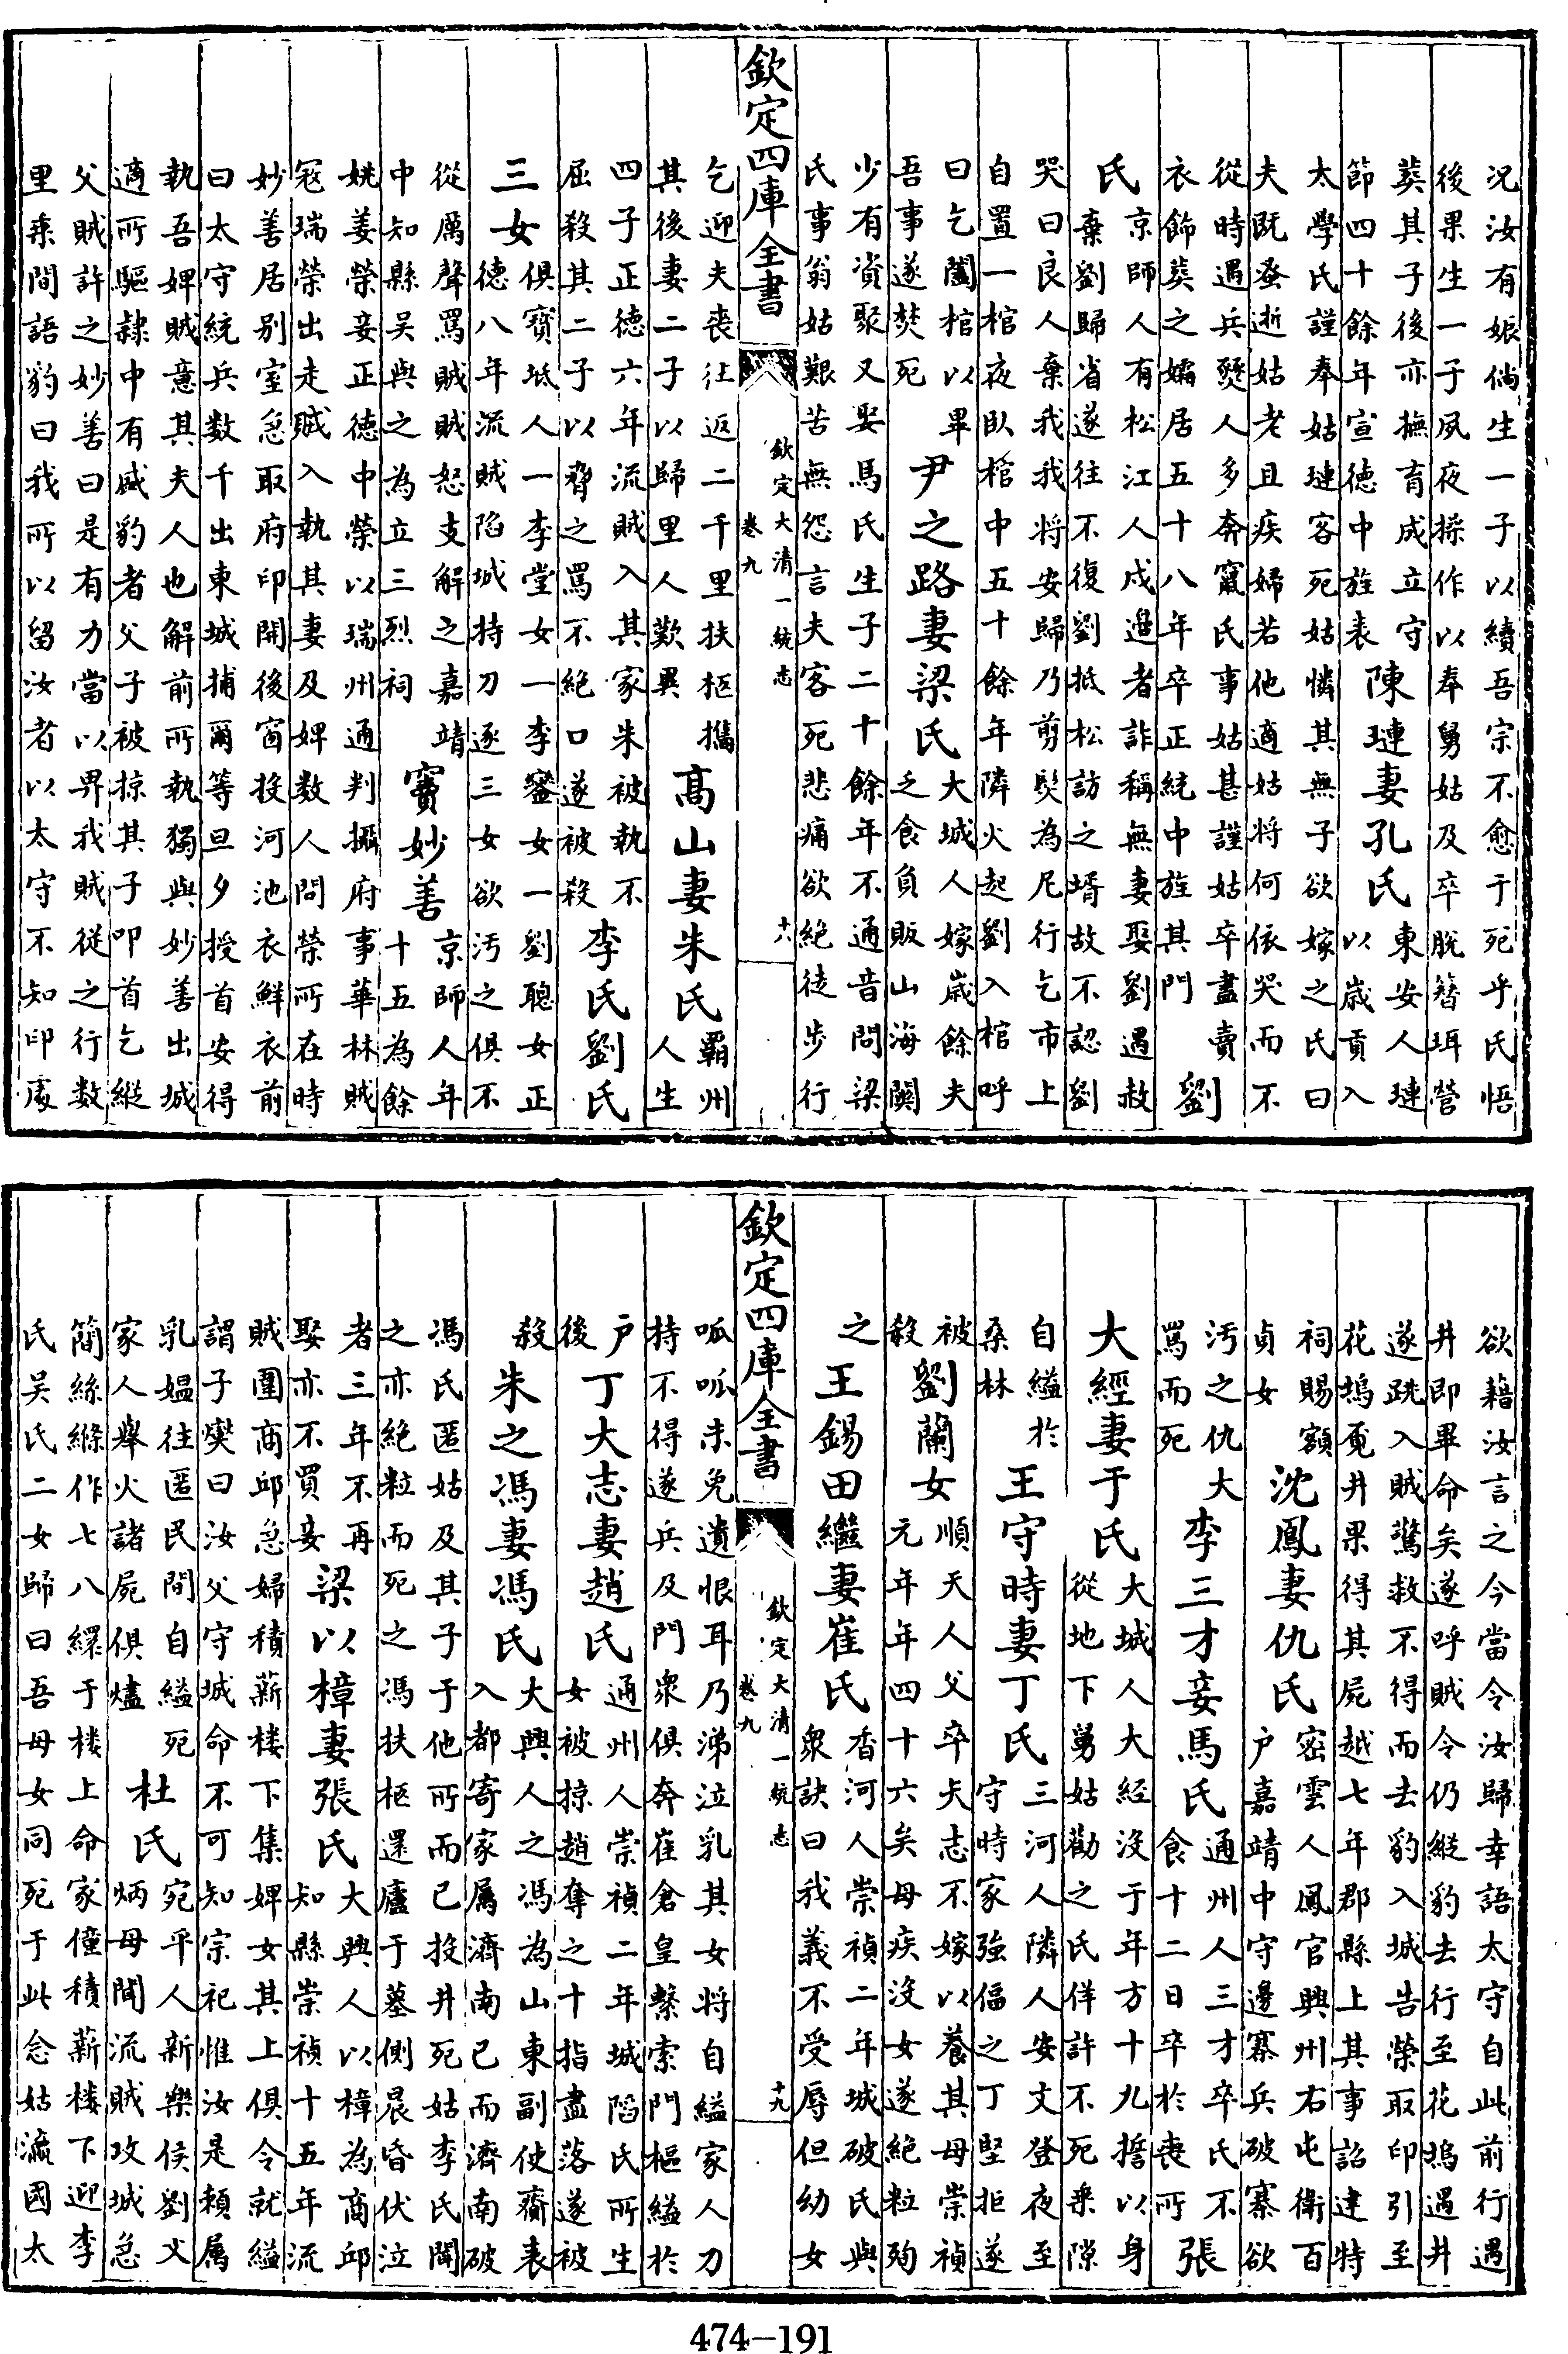 况汝有娠倘生一子以續吾宗不愈于死乎氏悟
後果生一子夙夜操作以奉舅姑及卒脱簪珥營
葬其子後亦撫育成立守
節四十餘年宣德中旌表
陳璉妻孔氏
東安人璉
以歲貢入
太學氏謹奉姑璉客死姑憐其無子欲嫁之氏曰
夫既蚤逝姑老且疾婦若他適姑將何依哭而不
從時遇兵燹人多奔竄氏事姑甚謹姑卒盡賣
衣飾葬之孀居五十八年卒正統中旌其門
劉
氏
京師人有松江人戍邊者詐稱無妻娶劉遇赦
棄劉歸省遂往不復劉抵松訪之壻故不認劉
哭曰良人棄我我將安歸乃剪髮為尼行乞市上
自置一棺夜臥棺中五十餘年隣火起劉入棺呼
曰乞闔棺以畢
吾事遂焚死
尹之路妻梁氏
大城人嫁歲餘夫
乏食負販山海關
少有資聚又娶馬氏生子二十餘年不通音問梁
氏事翁姑艱苦無怨言夫客死悲痛欲絶徒步行
欽定四庫全書
欽定大清一統志
卷九
十八
乞迎夫喪往返二千里扶柩攜
其後妻二子以歸里人歎異
高山妻朱氏
霸州
人生
四子正德六年流賊入其家朱被執不
屈殺其二子以脅之罵不絶口遂被殺
李氏劉氏
三女
俱寶坻人一李堂女一李鑾女一劉聰女正
德八年流賊陷城持刀逐三女欲汚之俱不
從厲聲罵賊賊怒支解之嘉靖
中知縣吳與之為立三烈祠
竇妙善
京師人年
十五為餘
姚姜榮妾正德中榮以瑞州通判攝府事華林賊
寇瑞榮出走賊入執其妻及婢数人問榮所在時
妙善居别室急取府印開後窗投河池衣鮮衣前
曰太守統兵数千出東城捕爾等旦夕授首安得
執吾婢賊意其夫人也解前所執獨與妙善出城
適所驅隸中有盛豹者父子被掠其子叩首乞縱
父賊許之妙善曰是有力當以畀我賊從之行数
里乘間語豹曰我所以留汝者以太守不知印處
欲藉汝言之今當令汝歸幸語太守自此前行遇
井即畢命矣遂呼賊令仍縱豹去行至花塢遇井
遂跳入賊驚救不得而去豹入城告榮取印引至
花塢覔井果得其屍越七年郡縣上其事詔建特
祠賜額
貞女
沈鳳妻仇氏
密雲人鳳官興州右屯衛百
户嘉靖中守邊寨兵破寨欲
汚之仇大
罵而死
李三才妾馬氏
通州人三才卒氏不
食十二日卒於喪所
張
大經妻于氏
大城人大經沒于年方十九誓以身
從地下舅姑勸之氏佯許不死乘隙
自縊於
桑林
王守時妻丁氏
三河人隣人安文登夜至
守時家強偪之丁堅拒遂
被
殺
劉蘭女
順天人父卒夫志不嫁以養其母崇禎
元年年四十六矣母疾沒女遂絶粒殉
之
王錫田繼妻崔氏
香河人崇禎二年城破氏與
衆訣曰我義不受辱但幼女
欽定四庫全書
欽定大清一統志
卷九
十九
呱呱未免遺恨耳乃涕泣乳其女將自縊家人刀
持不得遂兵及門衆俱奔崔倉皇繫索門樞縊於
户
後
丁大志妻趙氏
通州人崇禎二年城陷氏所生
女被掠趙奪之十指盡落遂被
殺
朱之馮妻馮氏
大興人之馮為山東副使齎表
入都寄家属濟南已而濟南破
馮氏匿姑及其子于他所而已投井死姑李氏聞
之亦絶粒而死之馮扶柩還廬于墓側晨昏伏泣
者三年不再
娶亦不買妾
梁以樟妻張氏
大興人以樟為商邱
知縣崇禎十五年流
賊圍商邱急婦積薪楼下集婢女其上俱令就縊
謂子燮曰汝父守城命不可知宗祀惟汝是頼属
乳媼往匿民間自縊死
家人舉火諸屍俱燼
杜氏
宛平人新樂侯劉文
炳母聞流賊攻城急
簡絲縧作七八繯于楼上命家僮積薪楼下迎李
氏吴氏二女歸曰吾母女同死于此念姑瀛國太
474—191